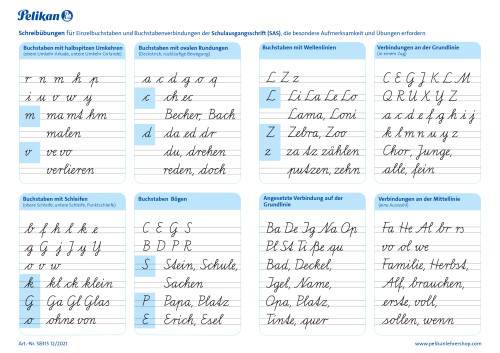 Pelikan
Schreibübungen für Einzelbuchstaben und Buchstabenverbindungen der Schulausgangsschrift (SAS), die besondere Aufmerksamkeit und Übungen erfordern
Buchstaben mit halbspitzen Umkehren
(obere Umkehr Arkade, untere Umkehr Girlande)
r n m h p
i u v w y
m ma mt hm
malen
v ve vo
verlieren
Buchstaben mit ovalen Rundungen
(Deckstrich, rückläufige Bewegung)
a c d g o q
c ch ec
Becher, Bach
d da ed dr
du, drehen
reden, doch
Buchstaben mit Wellenlinien
L Z z
L Li La Le Lo
Lama, Loni
Z Zebra, Zoo
z za tz zählen
putzen, zehn
Verbindungen an der Grundlinie
(in einem Zug)
C E G J K L M
Q R U X Y Z
a c d e f g h i j
k l m n u y z
Chor, Junge,
alle, fein
Buchstaben mit Schleifen
(obere Schleife, untere Schleife, Punktschleife)
b f h k l e
g G j J y Y
o v w
k kl ck klein
G Ga Gl Glas
o ohne von
Buchstaben Bögen
C E G S
B D P R
S Stein, Schule,
Sachen
P Papa, Platz
E Erich, Esel
Angesetzte Verbindung auf der
Grundlinie
Ba De Ig Na Op
Pl St Ti Be qu
Bad, Deckel,
Igel, Name,
Opa, Platz,
Tinte, quer
Verbindungen an der Mittellinie
(eine Auswahl)
Fa He Al br rs
vo ol we
Familie, Herbst,
Alf, brauchen,
erste, voll,
sollen, wenn
Art.-Nr. SB315 12/2021
www.pelikanlehrershop.com